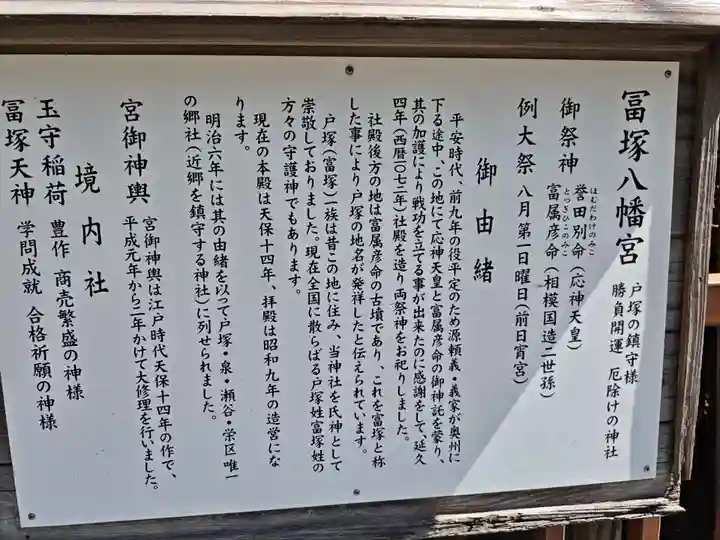 冨塚八幡宮
戸塚の鎮守様
勝負開運 厄除けの神社
御祭神
誉田別命(応神天皇)
はむだわけのみこ
富属彦命(相模国造二世孫)
とつぎひこのみこ
例大祭 八月第一日曜日(前日宵宮)
御由緒
平安時代、前九年の役平定のため源頼義・義家が奥州に
下る途中、この地にて応神天皇と富属彦命の御神託を蒙り、
其の加護により戦功を立てる事が出来たのに感謝をして、延久
四年(西暦一〇七二年)社殿を造り両祭神をお祀りしました。
社殿後方の地は富属彦命の古墳であり、これを富塚と称
した事により戸塚の地名が発祥したと伝えられています。
戸塚(富塚)一族は昔この地に住み、当神社を氏神として
崇敬しておりました。現在全国に散らばる戸塚姓富塚姓の
方々の守護神でもあります。
現在の本殿は天保十四年、拝殿は昭和九年の造営にな
ります。
明治六年には其の由緒を以って戸塚・泉・瀬谷・栄区唯一
の郷社(近郷を鎮守する神社)に列せられました。
宮御神輿
宮御神輿は江戸時代天保十四年の作で、
平成元年から二年かけて大修理を行いました。
境内社
玉守稲荷 豊作 商売繁盛の神様
冨塚天神 学問成就 合格祈願の神様